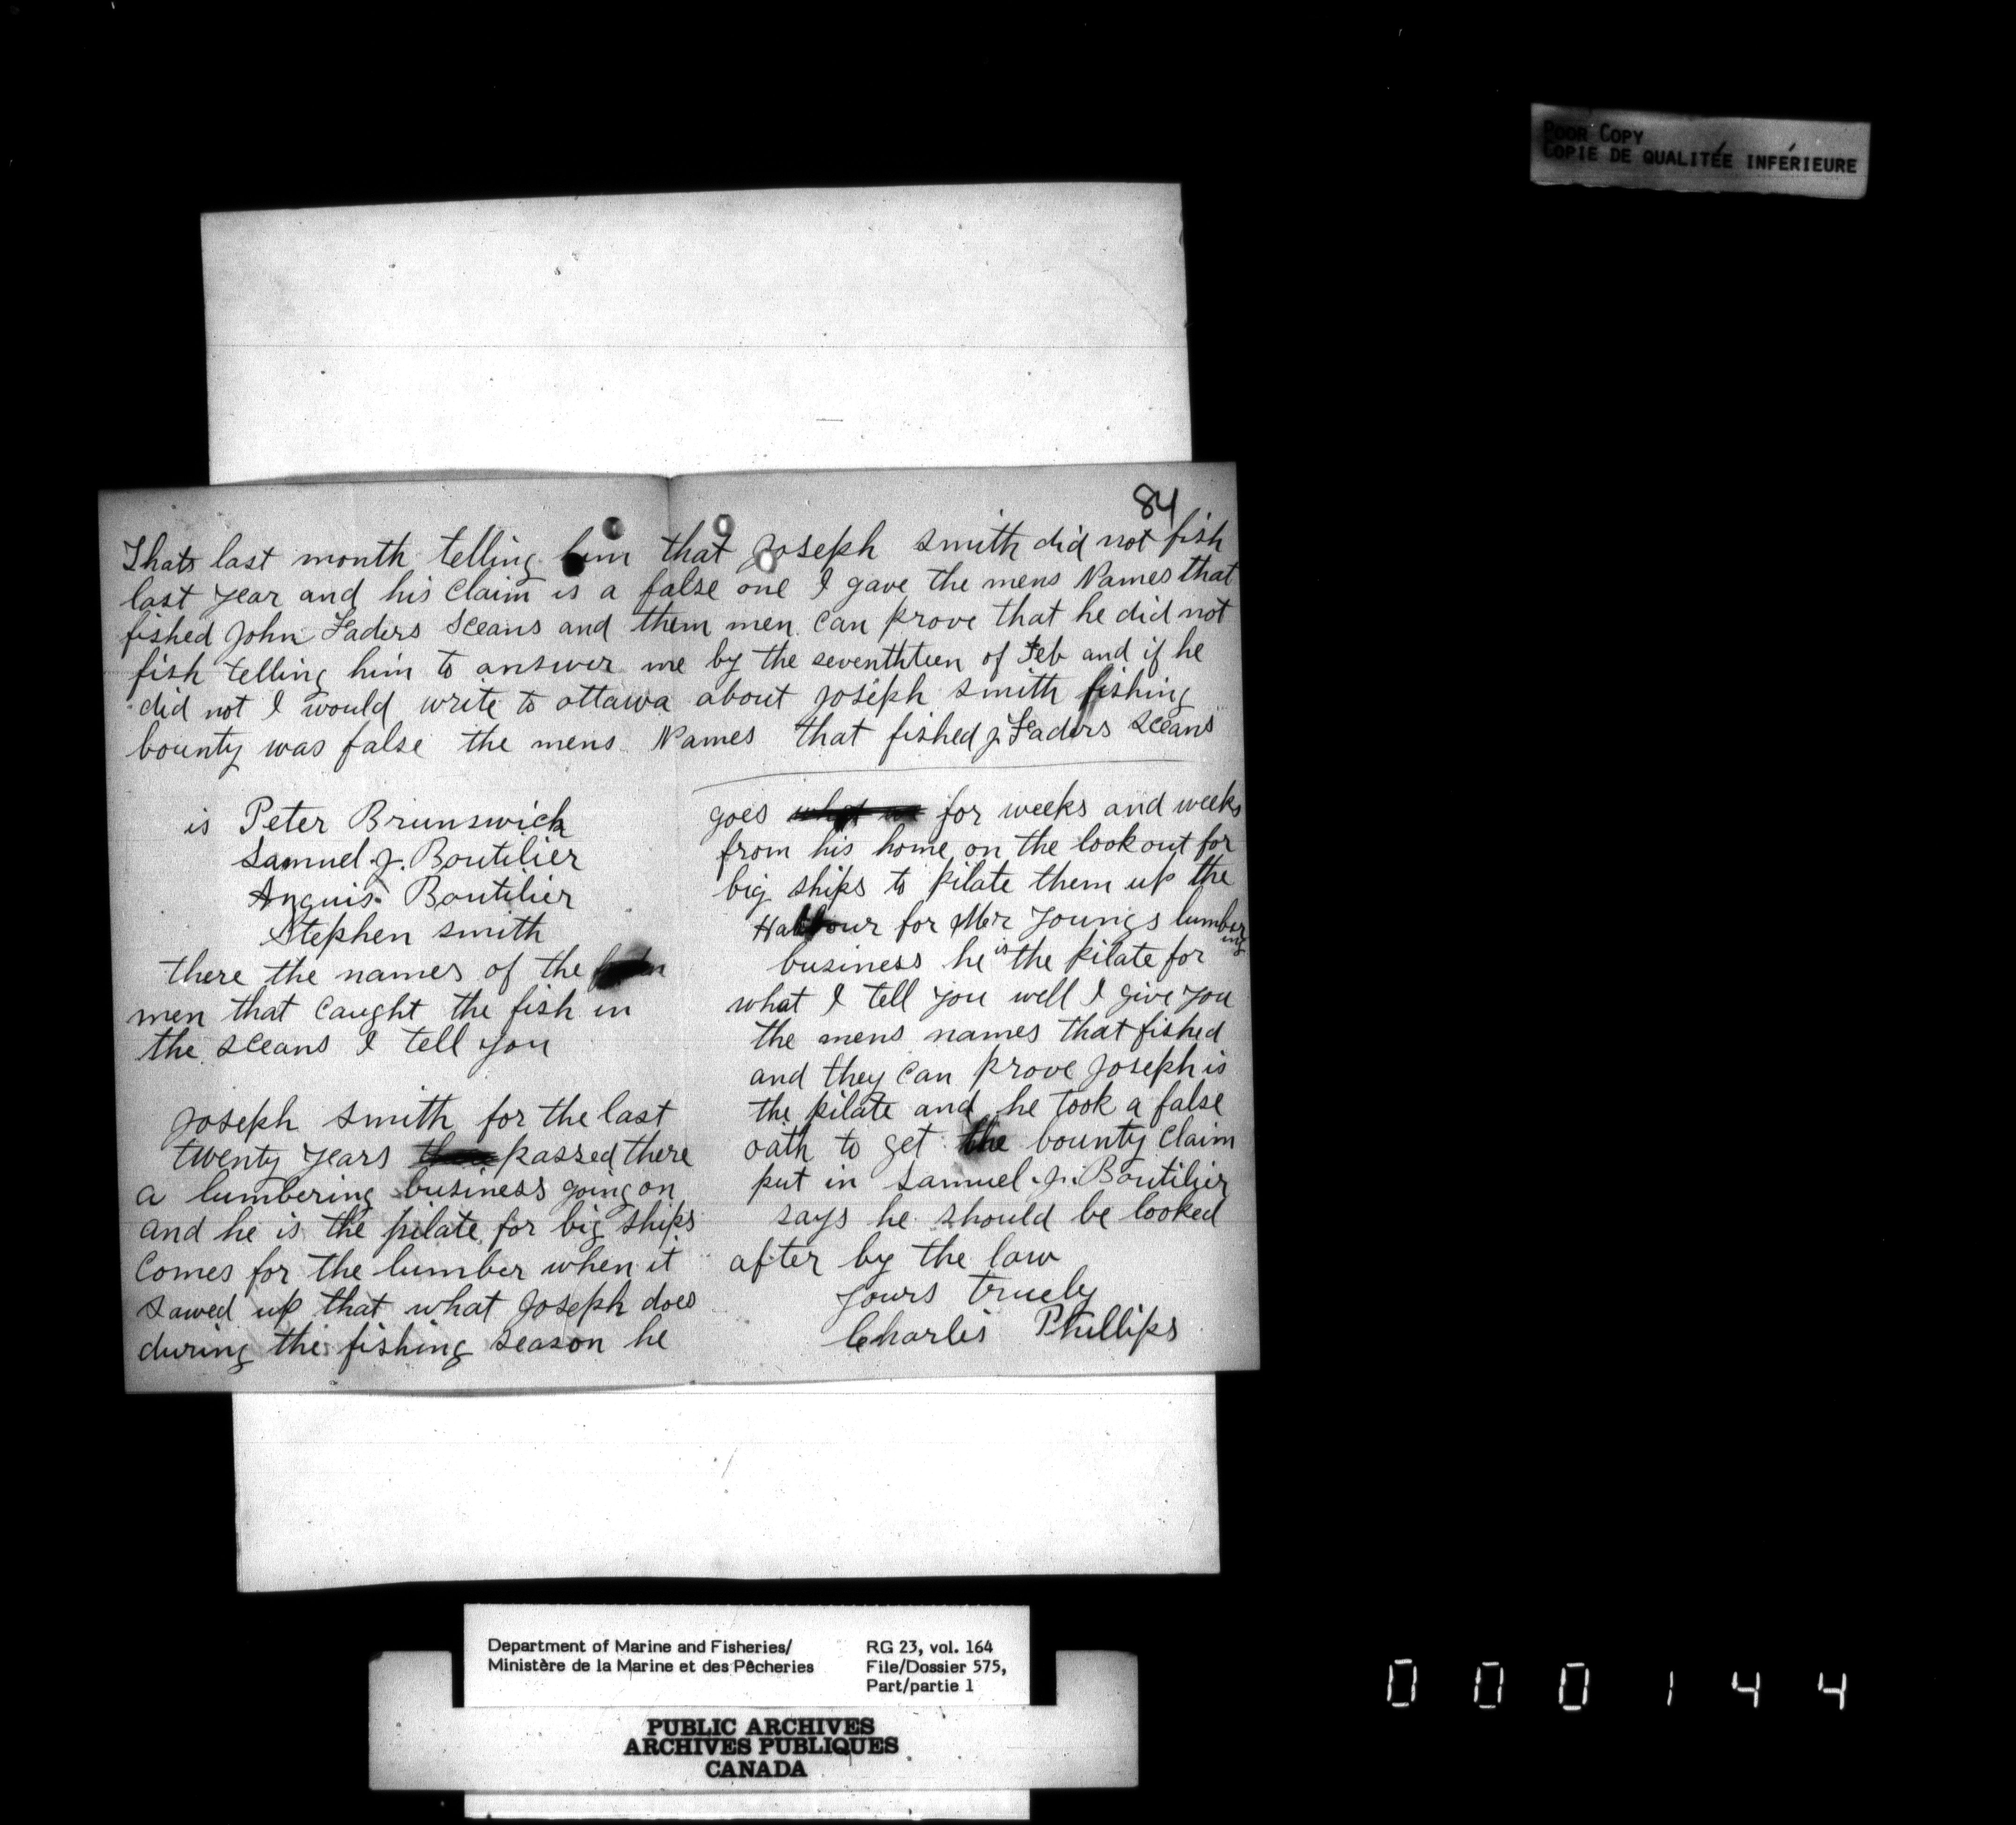 POOR COPY
COPIE DE QUALITÉE INFÉRIEURE
84
Thats last month telling him that Joseph smith did not fish
last year and his Claim is a false one I gave the mens Names that
fished John Faders sceans and them men can prove that he did not
fish telling him to answer me by the sevenththeen of Feb and if he
did not I would write to ottawa about Joseph smith fishing
bounty was false the mens Names that fished J. Faders sceans
is Peter Brunswick
Samuel J. Boutilier
Anguis Boutilier
Stephen smith
there the names of the
men that Caught the fish in
the sceans I tell you
Joseph smith for the last
twenty years passed there
a lumbering business going on
and he is the pilate for big ships
Comes for the lumber when it
sawed up that what Joseph does
during the fishing season he
goes for weeks and weeks
from his home on the look out for
big ships to pilate them up the
Harbour for Mr Youngs lumbering
business he is the pilate for
what I tell you well I give you
the mens names that fished
and they Can prove Joseph is
the pilate and he took a false
oath to get the bounty Claim
put in Samuel J. Boutilier
says he should be looked
after by the law
Yours truely
Charlis Phillips
Department of Marine and Fisheries/
Ministère de la Marine et des Pêcheries
RG 23, vol. 164
File/Dossier 575,
Part/partie 1
PUBLIC ARCHIVES
ARCHIVES PUBLIQUES
CANADA
000144